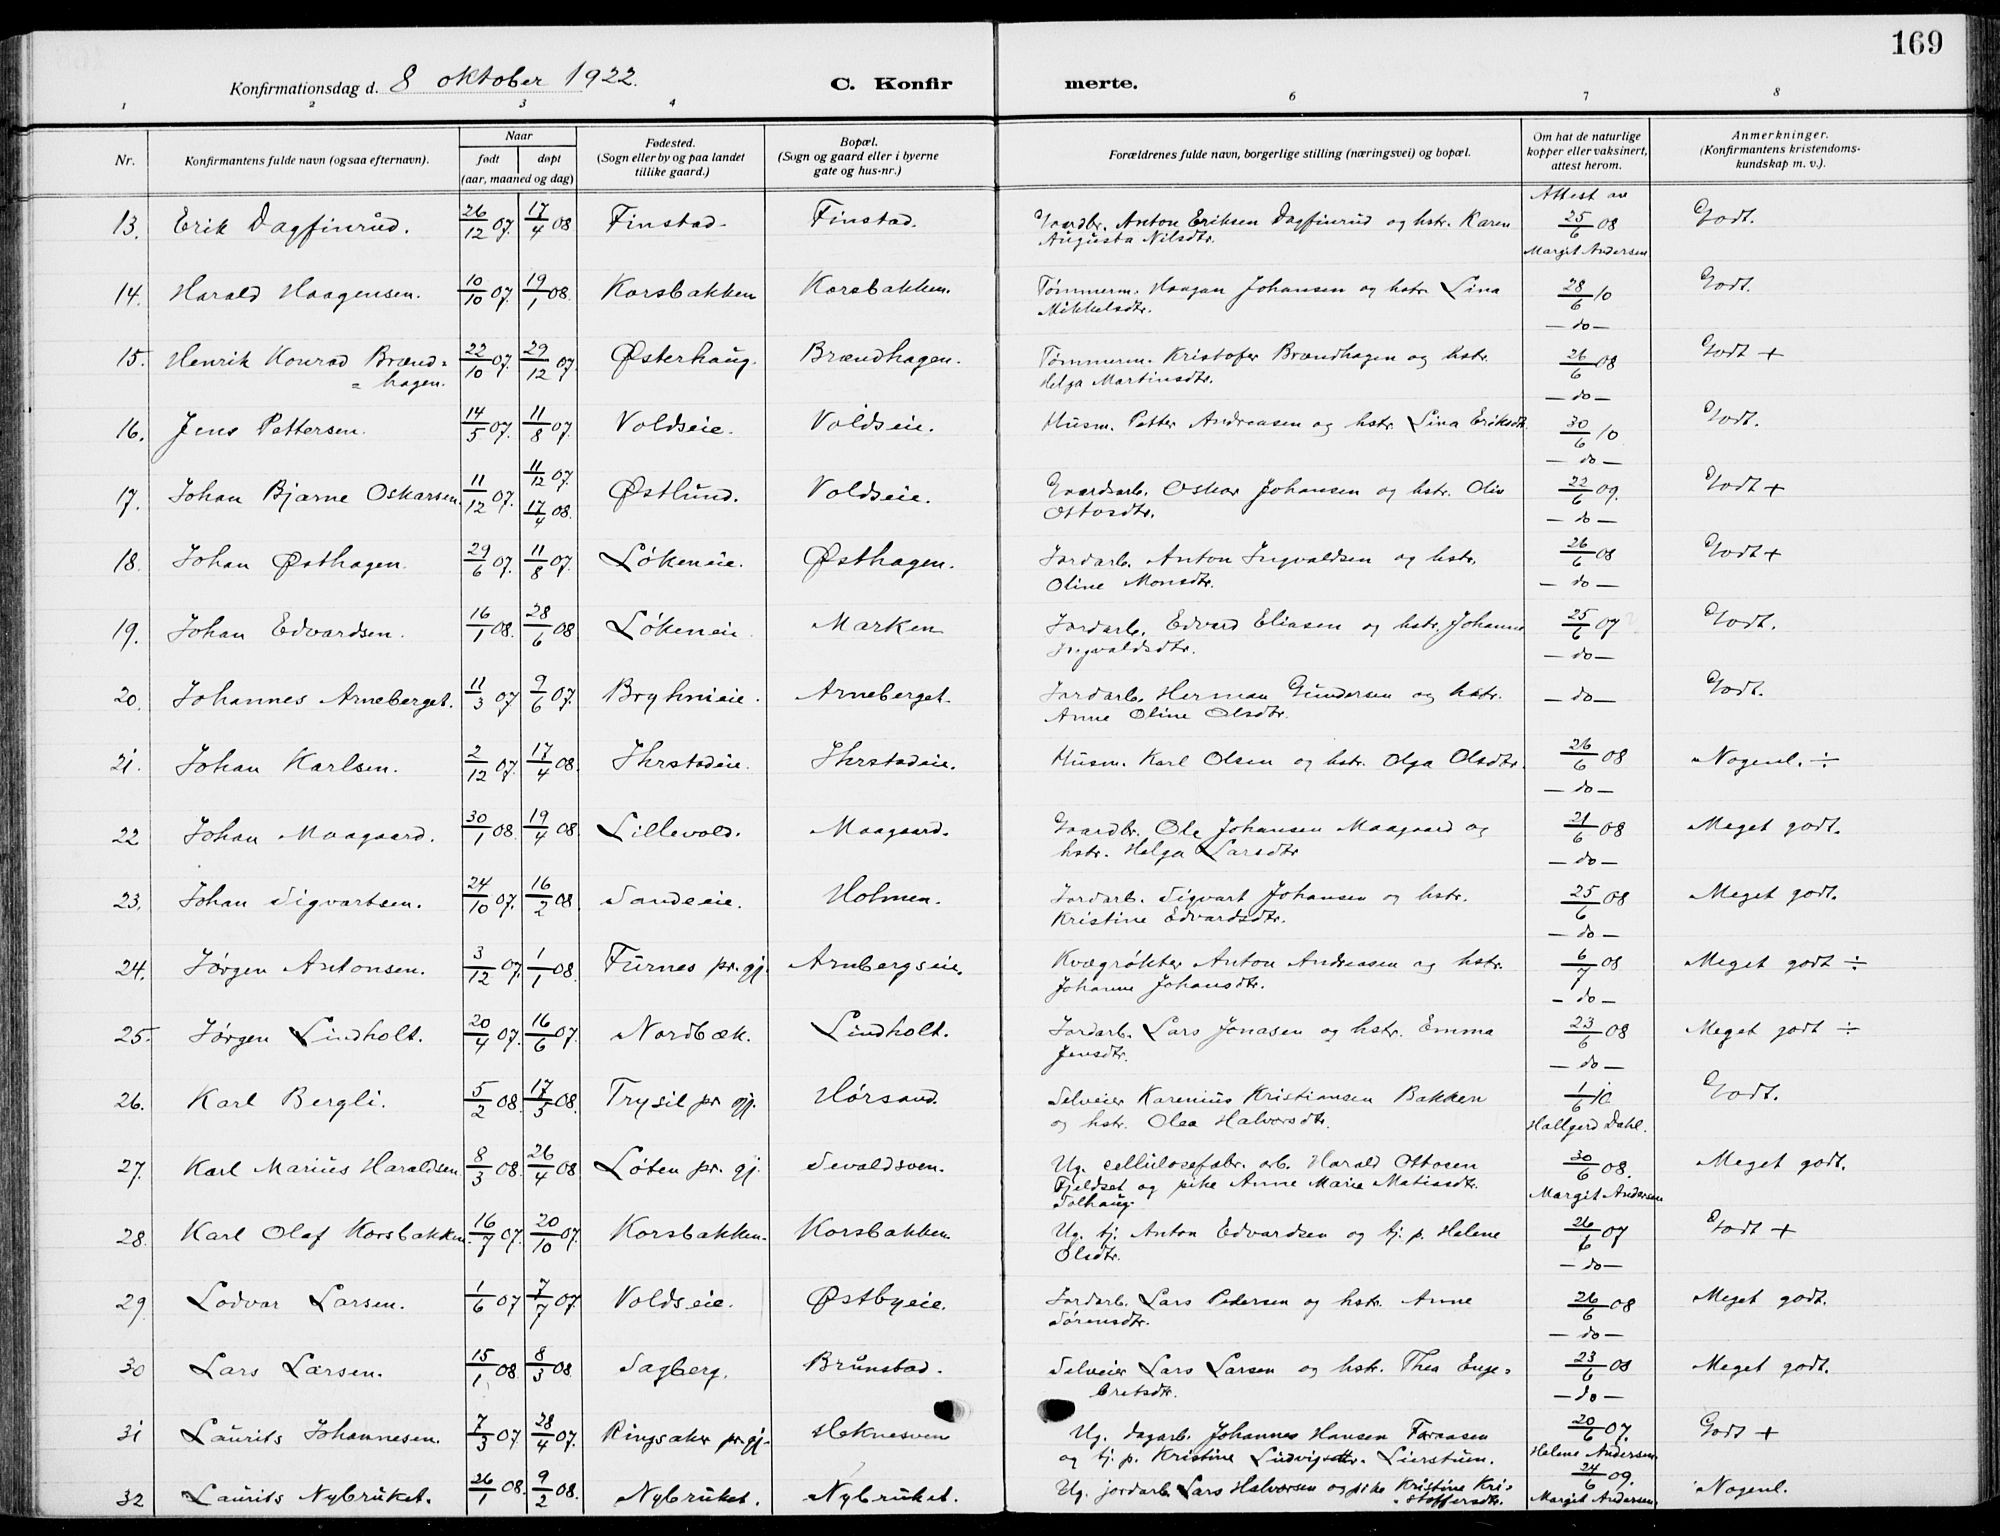 169
Konfirmationsdag d. 8 oktober 1922. C. Konfir merte.
1 2 3 4 6 7 8
Nr. Konfirmantens fulde navn (ogsaa efternavn). Naar født døpt (aar, maaned og dag) Fødested. (Sogn eller by og paa landet tillike gaard.) Bopæl. (Sogn og gaard eller i byerne gate og hus-nr.) Forældrenes fulde navn, borgerlige stilling (næringsvei) og bopæl. Om hat de naturlige kopper eller vaksinert, attest herom. Anmerkninger. (Konfirmantens kristendomskundskap m. v.).
Attest av
13. Erik Dagfinrud. 26/12 07. 17/4 08 Finstad. Finstad. Gaardbr. Anton Eriksen Dagfinrud og hstr. Karen 25/6 08 Godt.
Augusta Nilsdtr. Margit Andersen
14. Harald Haagensen. 10/10 07. 19/1 08. Korsbakken Korsbakken. Tømmerm. Haagan Johansen og hstr. Lina 28/6 10 Godt.
Mikkelsdtr. — do —
15. Henrik Konrad Brænd= 22/10 07. 29/12 07. Østerhaug. Brændhagen. Tømmerm. Kristofer Brændhagen og hstr. 26/6 08 Godt +
= hagen. Helga Martinsdtr. — do —
16. Jens Pettersen. 14/5 07. 11/8 07. Voldseie. Voldseie. Husm. Petter Andreasen og hstr. Lina Eriksdtr. 30/6 10 Godt.
— do —
11/12 07.
17. Johan Bjarne Oskarsen. 11/12 07. 17/4 08. Østlund. Voldseie. Gaardsarb. Oskar Johansen og hstr. Oliv 22/6 09. Godt +
Ottosdtr. — do —
18. Johan Østhagen. 29/6 07. 11/8 07. Løkeneie. Østhagen. Jordarb. Anton Ingvaldsen og hstr. 26/6 08 Godt +
Oline Monsdtr. — do —
19. Johan Edvardsen. 16/1 08. 28/6 08. Løkeneie Marken Jordarb. Edvard Eliasen og hstr. Johanne 25/6 07 Godt.
Ingvaldsdtr. — do —
20. Johannes Arneberget. 11/3 07 9/6 07. Bryhnieie. Arneberget. Jordarb. Herman Gundersen og hstr. — do — Godt.
Anne Oline Olsdtr.
21. Johan Karlsen. 2/12 07. 17/4 08. Ihrstadeie. Ihrstadeie. Husm. Karl Olsen og hstr. Olga Olsdtr. 26/6 08 Nogenl. ÷
— do —
22 Johan Maagaard. 30/1 08. 19/4 08. Lillevold. Maagaard. Gaardbr. Ole Johansen Maagaard og 21/6 08 Meget godt.
hstr. Helga Larsdtr — do —
23. Johan Sigvartsen. 24/10 07. 16/2 08. Sandeeie. Holmen. Jordarb. Sigvart Johansen og hstr. 25/6 08 Meget godt.
Kristine Edvardsdtr. — do —
24. Jørgen Antonsen. 3/12 07. 1/1 08. Furnes pr. gj. Arnbergseie. Kvægrøkter Anton Andreasen og hstr. 6/7 08 Meget godt ÷
Johanne Johansdtr. — do —
25. Jørgen Lindholt. 20/4 07. 16/6 07. Nordbæk. Lindholt. Jordarb. Lars Jonasen og hstr. Emma 23/6 08 Meget godt ÷
Jensdtr. — do —
26. Karl Bergli. 5/2 08. 17/5 08. Trysil pr gj. Hørsand. Selveier Karenius Kristiansen Bakken 1/6 10 Godt.
og hstr. Olea Halvorsdtr. Hallgerd Dahl.
27. Karl Marius Haraldsen 8/3 08. 26/4 08. Løten pr. gj. Sevaldsven. Ug. cellulosefabr. arb. Harald Ottosen 30/6 08. Meget godt.
Fjeldset og pike Anne Marie Matiasdtr. Margit Andersen
Solhaug.
28. Karl Olaf Korsbakken. 16/7 07. 20/10 07. Korsbakken. Korsbakken. Ug. tj. Anton Edvardsen og tj. p. Helene 26/6 07 Godt +
Olsdtr. — do —
29. Lodvar Larsen. 1/6 07 7/7 07. Voldseie. Østbyeie. Jordarb. Lars Pedersen og hstr. Anne 26/6 08 Meget godt.
Sørensdtr. — do —
30 Lars Larsen. 15/1 08. 8/3 08. Sagberg. Brunstad. Selveier Lars Larsen og hstr. Thea Enge= 23/6 08 Meget godt.
bretsdtr. — do —
31 Laurits Johannesen. 7/3 07 28/4 07. Ringsaker pr. gj. Heknesven Ug. dagarb. Johannes Hansen Foraasen 20/6 07. Godt +
og tj. p. Kristine Ludvigsdtr. Lierstuen. Helene Andersen
32 Laurits Nybruket. 26/1 08. 9/2 08. Nybruket. Nybruket. Ug. jordarb. Lars Halvorsen og pike Kristine Kri= 24/6 09. Nogenl.
= stoffersdtr. Margit Andersen.